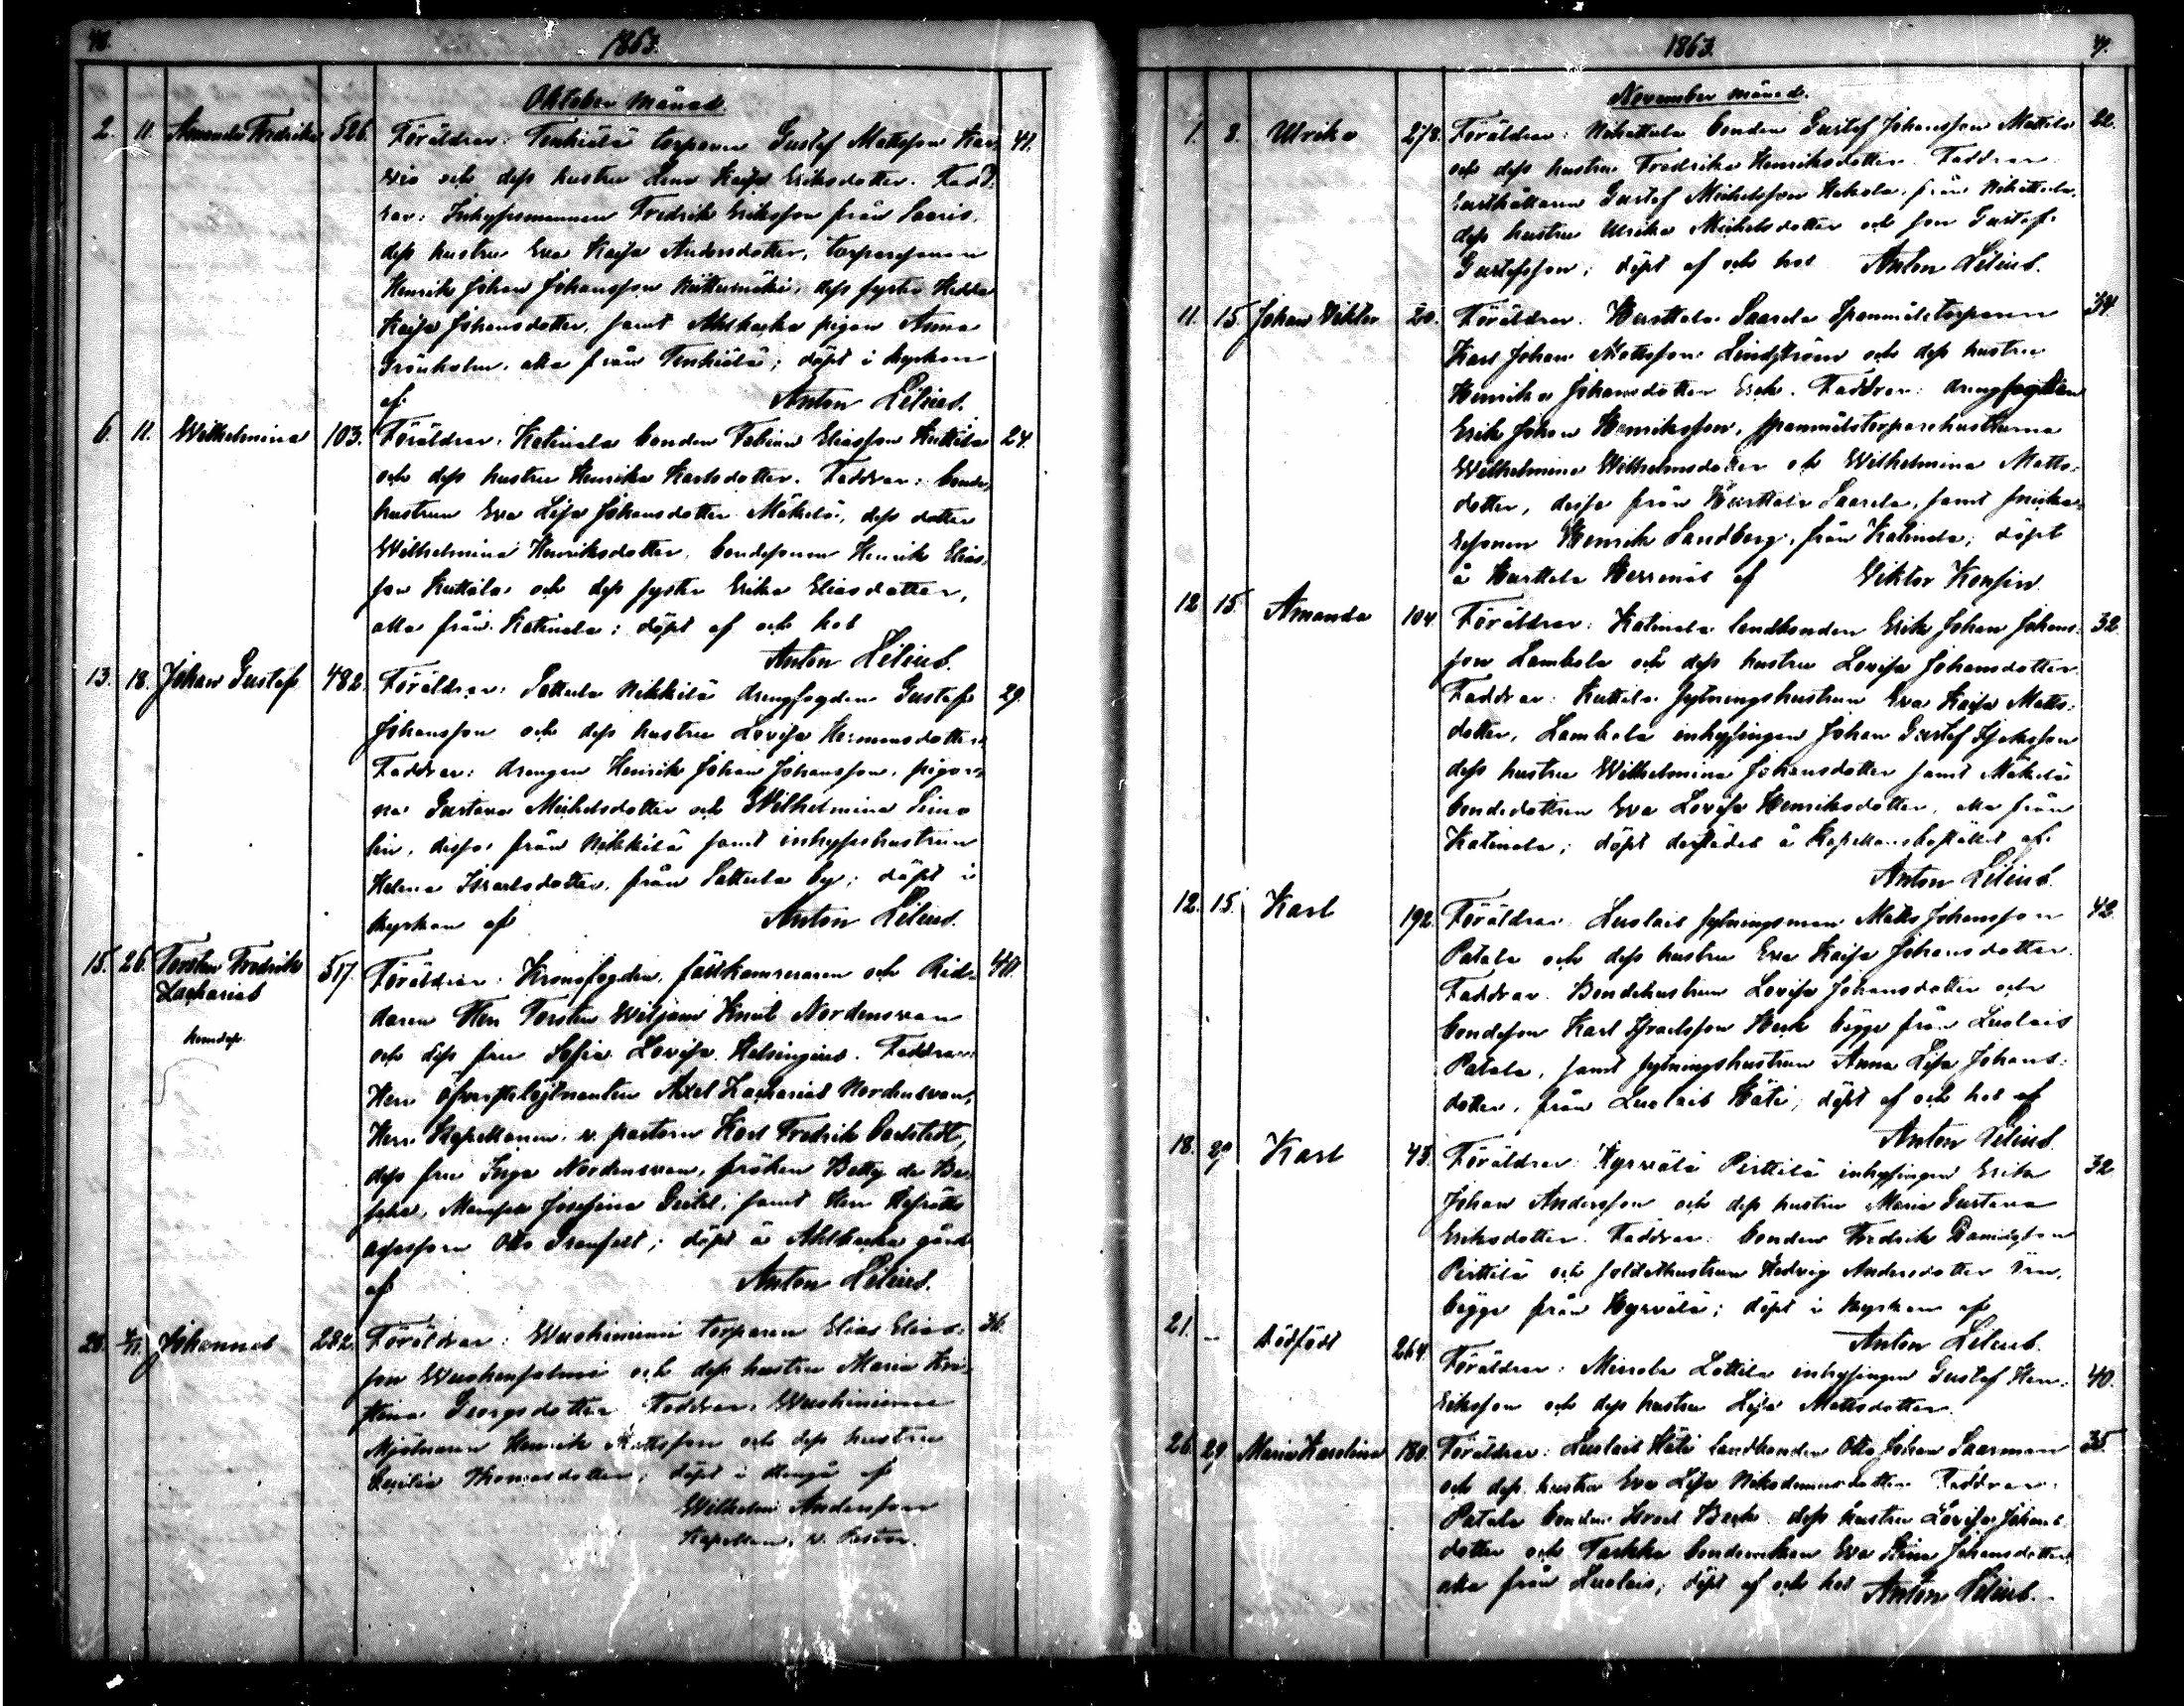 1863.
Oktober månad.
2. 11. Amanda Fredrika 526. Föräldrar: Tenhiälä torparen Gustaf Mattsson Kar= 41.
vio och dess hustru Lena Kajsa Eriksdotter. Fadd=
rar: Inhysesmannen Fredrik Eriksson från Saaris,
dess hustru Eva Kajsa Andersdotter, torparesonen
Henrik Johan Johansson, dess syster Hedda
Kajsa Johansdotter, samt Ahlbacka pigan Anna
Grönholm, alla från Tenhiälä; döpt i kyrkan
af Anton Lilius.
6. 11. Wilhelmina 103. Föräldrar: Katinala bonden Fabian Eliasson Kuttila 24.
och dess hustru Henrika Karlsdotter. Faddrar: bonde=
hustrun Eva Lisa Johansdotter Mäkelä, dess dotter
Wilhelmina Henriksdotter, bondesonen Henrik Elias=
son Kuttila och dess syster Erika Eliasdotter,
alla från Katinala; döpt af och hos
Anton Lilius.
13. 18. Johan Gustaf 482. Föräldrar: Sattula Nikkilä drengfogden Gustaf 29.
Johansson och dess hustru Lovisa Hermansdotter.
Faddrar: drengen Henrik Johan Johansson, pigor=
na Gustava Michelsdotter och Wilhelmina Simo
lin, dessa från Nikkilä samt inhyseshustrun
Helena Israelsdotter, från Sattula by; döpt i
kyrkan af Anton Lilius.
15. 26. Torsten Fredrik 517. Föräldrar: Kronofogden, och Rid=
Zacharias
daren Herr Torsten Wiljam Knut Nordensvan
och dess fru Sofia Lovisa Helsingius. Faddrar:
Herr Öfverstelöjtnanten Axel Zacharias Nordensvan,
Herr Kapellanen, v. pastorn Karl Fredrik
dess fru Inga Nordensvan, fröken Betty de
Mamsell Josefina samt Herr Hofrätts
Otto; döpt å Ahlbacka gård
af Anton Lilius.
28. Johannes 282. Föräldrar: Wuohiniemi torparen Elias Elias= 36.
son och dess hustru Maria Kri=
stina Georgsdotter. Faddrar: Wuohiniemi
Mjölnaren Henrik Mattsson och dess hustru
Cecilia Thomasdotter; döpt i af
Wilhelm Andersson
Kapellan, v. Pastor.
1863.
November månad.
1. 8. Ulrika 278. Föräldrar: Nihattula bonden Gustaf Johansson Mattila 22.
och dess hustru Fredrika Henriksdotter. Faddrar:
Gustaf Michelsson från Nihattula,
dess hustru Ulrika Michelsdotter och son Gustaf
Gustafsson; döpt af och hos Anton Lilius.
11. 15. Johan Viktor 20. Föräldrar: Hurttala Saarela Spannmålstorparen 34.
Karl Johan Mattsson Lindström och dess hustru
Henrika Johansdotter Faddrar: drengfogden
Erik Johan Henriksson, spannmålstorparehustrurna
Wilhelmina Wilhelmsdotter och Wilhelmina Matts=
dotter, dessa från Hurttala Saarela, samt snicka=
resonen Henrik Sandberg, från Katinala; döpt
å Hurttala af Viktor Konsin.
12 15. Amanda 104 Föräldrar: Katinala landbonden Erik Johan Johans= 32
son Lambola och dess hustru Lovisa Johansdotter.
Faddrar: Kuttila sytningshustrun Eva Kajsa Matts=
dotter, Lambola inhysingen Johan Gustaf
dess hustru Wilhelmina Johansdotter samt Mäkelä
bondedottren Eva Lovisa Henriksdotter, alla från
Katinala; döpt derstädes å Kapellansbostället af
Anton Lilius.
12. 15. Karl 192. Föräldrar: Luolais sytningsman Matts Johansson 42.
Patala och dess hustru Eva Kajsa Johansdotter.
Faddrar: Bondehustrun Lovisa Johansdotter och
bondeson Karl Israelsson Heck begge från Luolais
Patala, samt sytningshustrun Anna Lisa Johans=
dotter, från Luolais Häti; döpt af och hos af
Anton Lilius.
18. 29 Karl 43. Föräldrar: Hyrvälä Perttilä inhysingen Erik 32
Johan Andersson och dess hustru Maria Gustava
Eriksdotter. Faddrar: bonden Fredrik Davidsson
Perttilä och soldathustrun Hedvig Andersdotter
begge från Hyrvälä; döpt i kyrkan af
Anton Lilius.
21. – Dödfödt 264 Föräldrar: Mierola Lottila inhysingen Gustaf Hen= 40.
riksson och dess hustru Lisa Mattsdotter.
26. 29. Maria Karolina 180. Föräldrar: Luolais Häti landbonden Otto Johan Saarman 35.
och dess hustru Eva Lisa Nikodemusdotter. Faddrar:
Patala bonden Israel Heck dess hustru Lovisa Johans
dotter och Eva Stina Johansdotter,
alla från Luolais; döpt af och hos Anton Lilius.